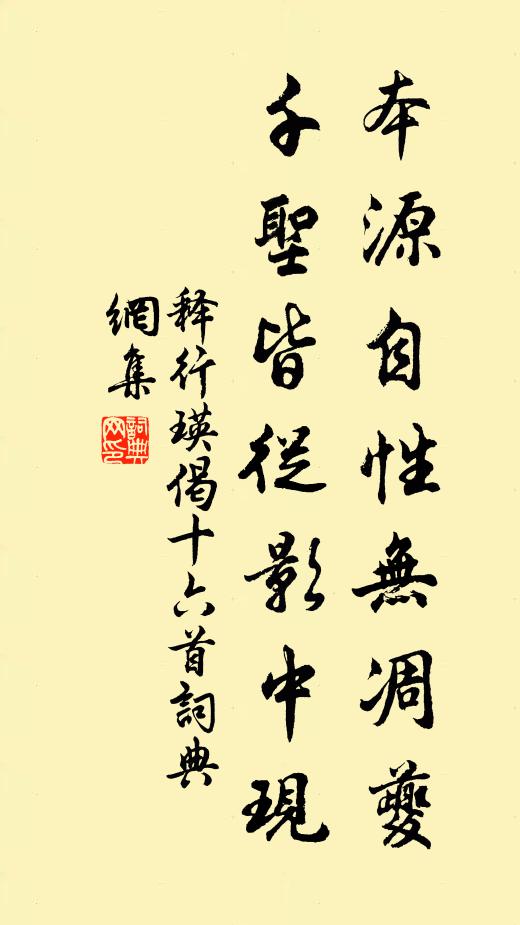 本源自性無凋變
千聖皆從影中現
释行瑛偈十六首詞典
網集
詞典
网印